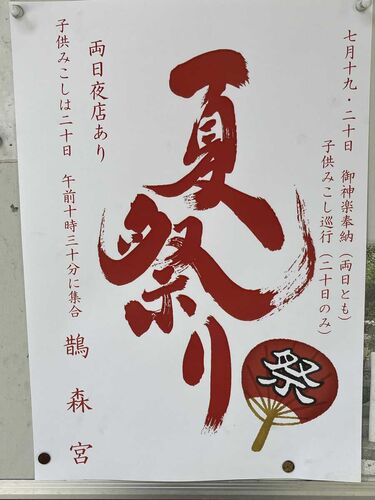 七月十九・二十日 御神楽奉納(両日とも)
子供みこし巡行(二十日のみ)
夏祭り
祭
両日夜店あり
子供みこしは二十日 午前十時三十分に集合
鵲森宮